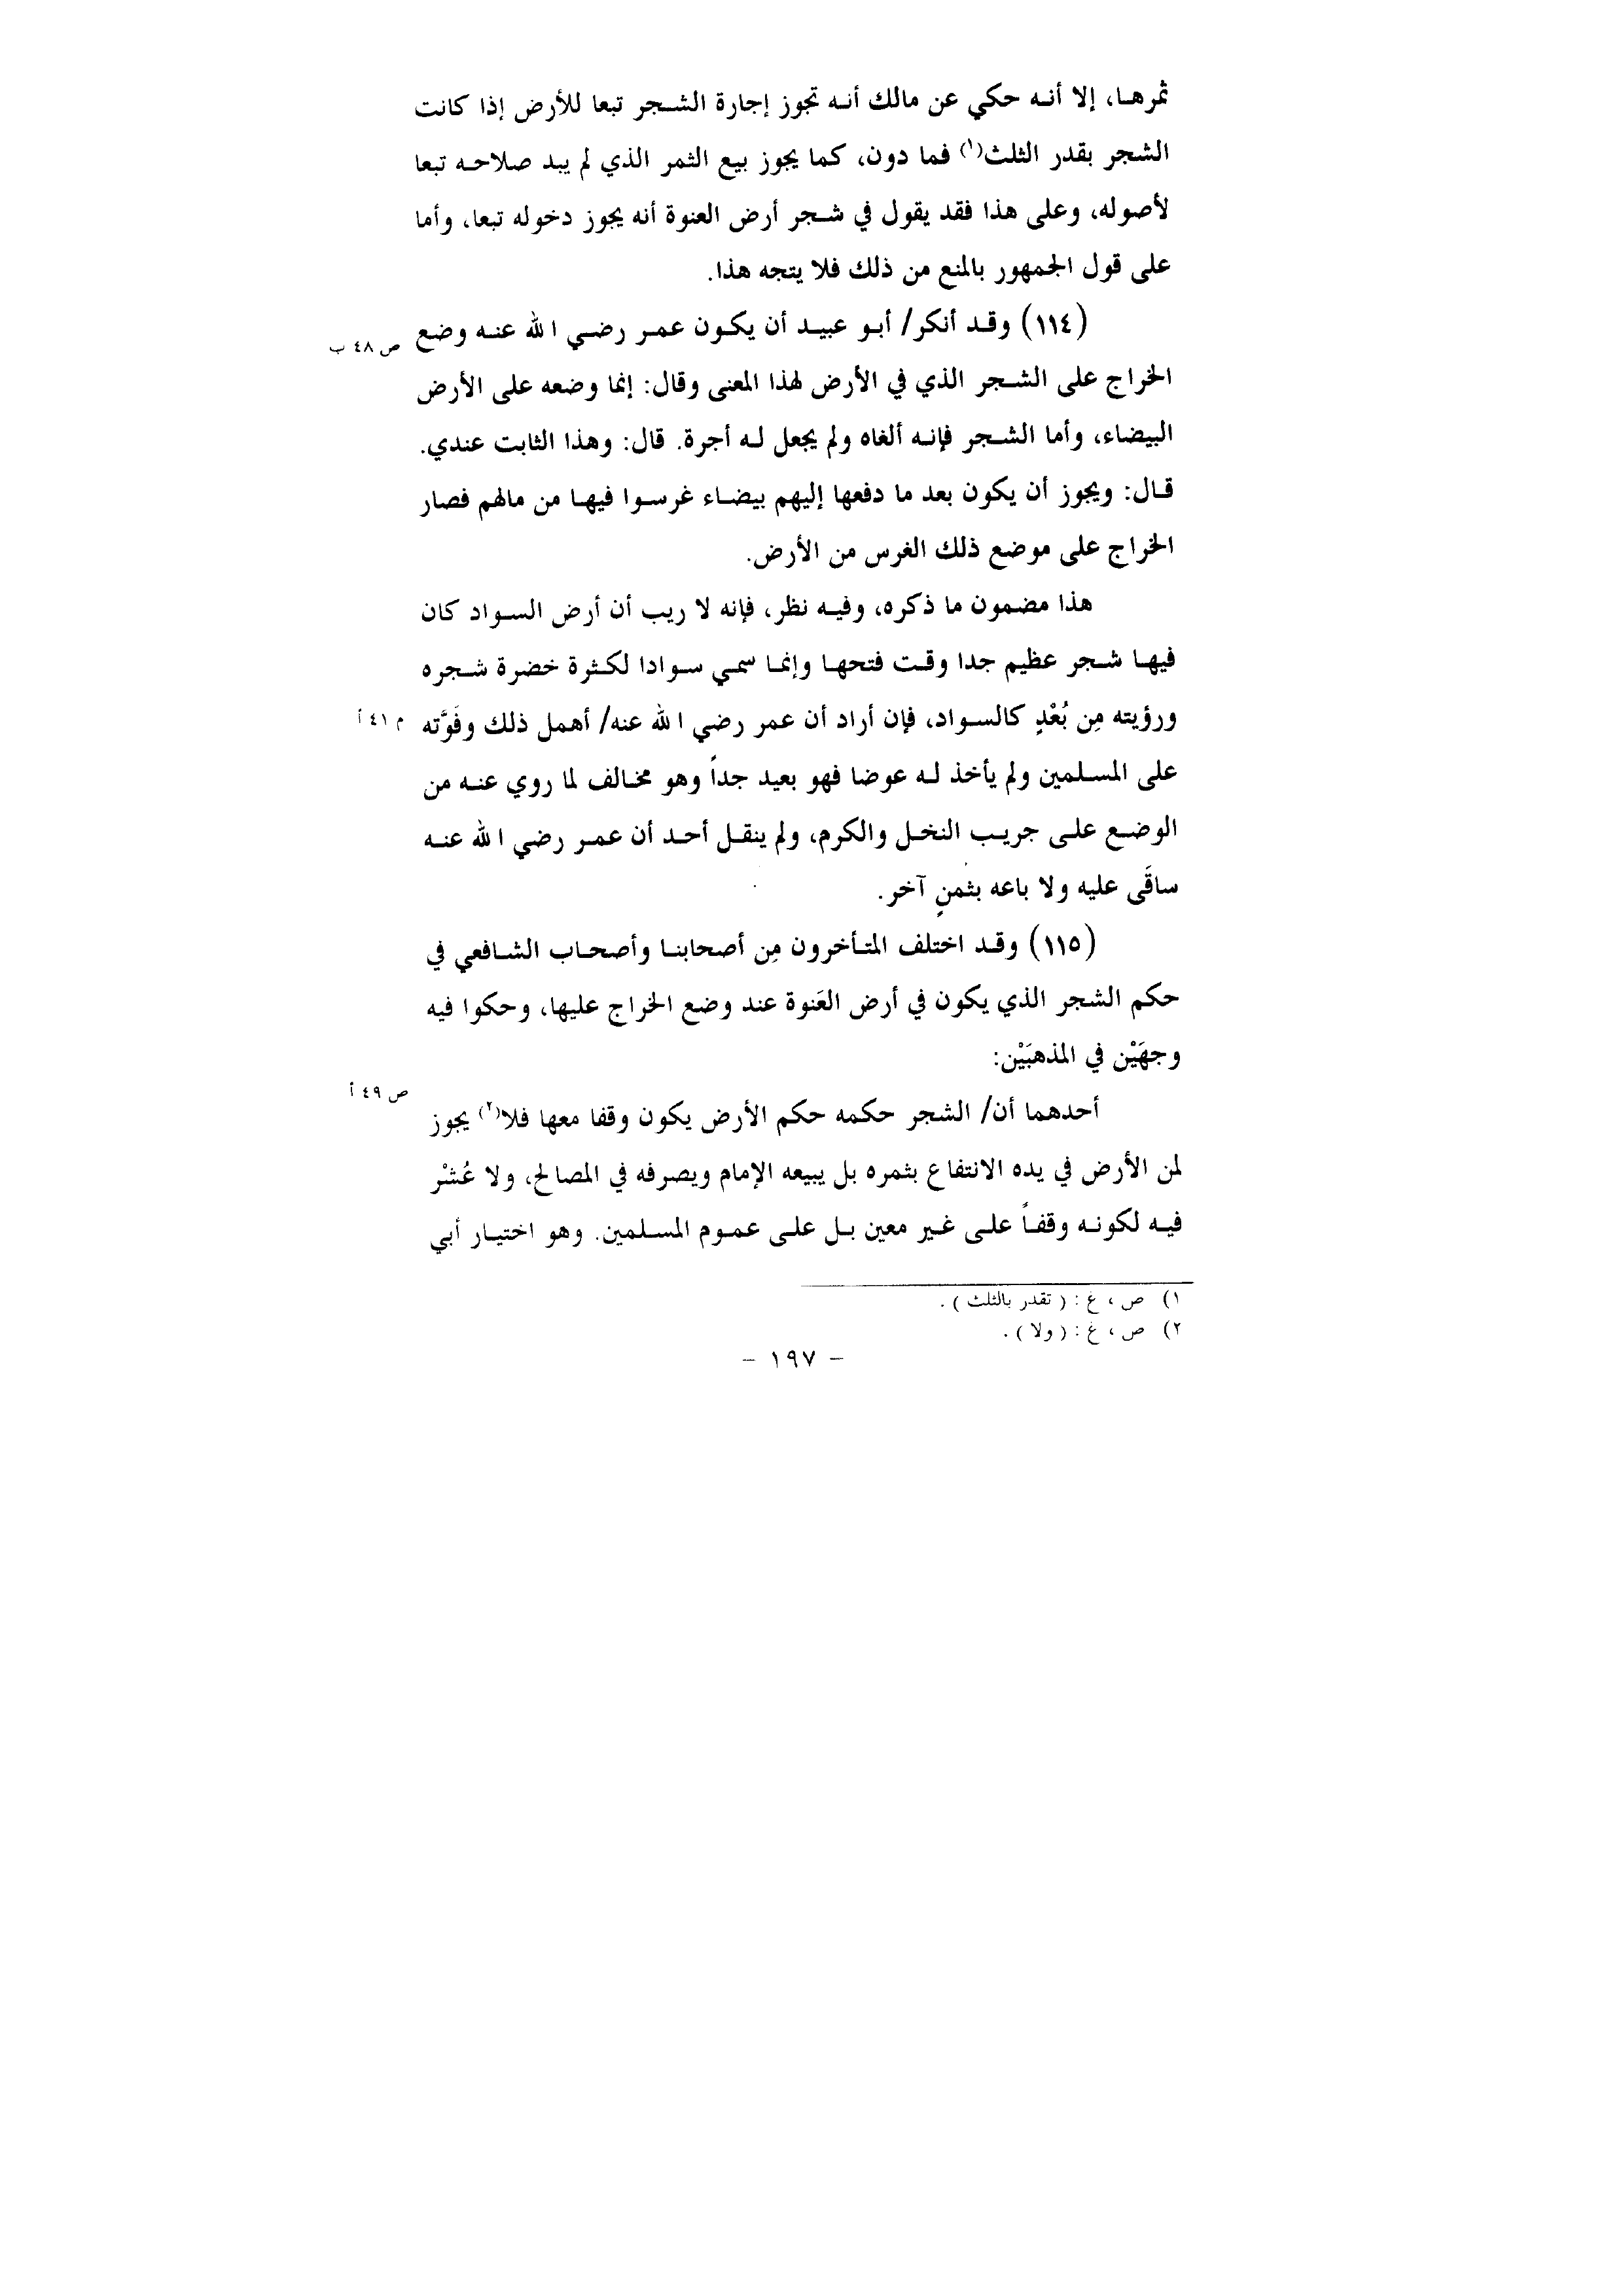 ثمرها، إلا أنه حكي عن مالك أنه تجوز إجارة الشجر تبعا للأرض إذا كانت
الشجر بقدر الثلث(١) فما دون، كما يجوز بيع الثمر الذي لم يبد صلاحه تبعا
لأصوله، وعلى هذا فقد يقول في شجر أرض العنوة أنه يجوز دخوله تبعا، وأما
على قول الجمهور بالمنع من ذلك فلا يتجه هذا.
(١١٤) وقد أنكر/ أبو عبيد أن يكون عمر رضي الله عنه وضع
ص ٤٨ ب
الخراج على الشجر الذي في الأرض لهذا المعنى وقال: إنما وضعه على الأرض
البيضاء، وأما الشجر فإنه ألغاه ولم يجعل له أجرة. قال: وهذا الثابت عندي.
قال: ويجوز أن يكون بعد ما دفعها إليهم بيضاء غرسوا فيها من مالهم فصار
الخراج على موضع ذلك الغرس من الأرض.
هذا مضمون ما ذكره، وفيه نظر، فإنه لا ريب أن أرض السواد كان
فيها شجر عظيم جدا وقت فتحها وإنما سمي سوادا لكثرة خضرة شجره
ورؤيته مِن بُعْدٍ كالسواد، فإن أراد أن عمر رضي الله عنه/ أهمل ذلك وفَوَّته
م ٤١ أ
على المسلمين ولم يأخذ له عوضا فهو بعيد جداً وهو مخالف لما روي عنه من
الوضع على جريب النخل والكرم، ولم ينقل أحد أن عمر رضي الله عنه
ساقَى عليه ولا باعه بثمنٍ آخر.
(١١٥) وقد اختلف المتأخرون مِن أصحابنا وأصحاب الشافعي في
حكم الشجر الذي يكون في أرض العَنوة عند وضع الخراج عليها، وحكوا فيه
وجهَيْن في المذهبَيْن:
ص ٤٩ أ
أحدهما أن/ الشجر حكمه حكم الأرض يكون وقفا معها فلا(٢) يجوز
لمن الأرض في يده الانتفاع بثمره بل يبيعه الإمام ويصرفه في المصالح، ولا عُشْر
فيه لكونه وقفاً على غير معين بل على عموم المسلمين. وهو اختيار أبي
١) ص، غ: (تقدر بالثلث).
٢) ص، غ: (ولا).
- ١٩٧ -